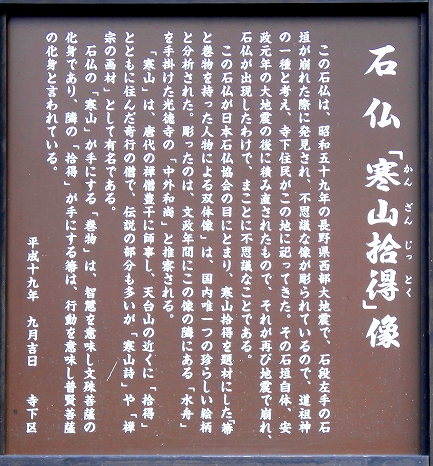 石仏「寒山拾得」像
かん ざん じっ とく
この石仏は、昭和五十九年の長野県西部大地震で、石段左手の石
垣が崩れた際に発見され、不思議な像が彫られているので、道祖神
の一種と考え、寺下住民がこの地に祀ってきた。その石垣自体、安
政元年の大地震の後に積み直されたもので、それが再び地震で崩れ、
石仏が出現したわけで、まことに不思議なことである。
この石仏が日本石仏協会の目にとまり、寒山拾得を題材にした「箒
と巻物を持った人物による双体像」は、国内唯一つの珍らしい絵柄
と分析された。彫ったのは、文政年間にこの像の隣にある「水舟」
を手掛けた光徳寺の「中外和尚」と推察される。
「寒山」は、唐代の禅僧豊干に師事し、天台山の近くに「拾得」
とともに住んだ奇行の僧で、伝説の部分も多いが「寒山詩」や「禅
宗の画材」として有名である。
石仏の「寒山」が手にする「巻物」は、智慧を意味し文殊菩薩の
化身であり、隣の「拾得」が手にする箒は、行動を意味し普賢菩薩
の化身と言われている。
平成十九年 九月吉日 寺下区